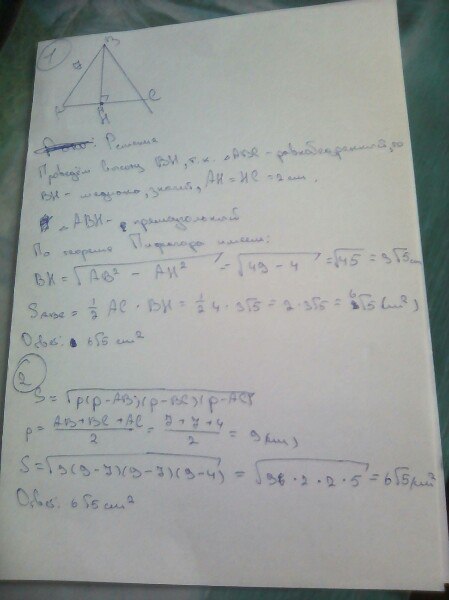 1
B
C
H
Решение
Проведём высоту BH, т.к. △ABC - равнобедренный, то
BH - медиана, значит, AH = HC = 2 см.
△ABH - прямоугольный
По теореме Пифагора имеем:
BH = √(AB² - AH²) = √(49 - 4) = √45 = 3√5 см
S△ABC = 1/2 AC · BH = 1/2 4 · 3√5 = 2 · 3√5 = 6√5 (см²)
Ответ: 6√5 см²
2
S = √(p(p-AB)(p-BC)(p-AC))
p = (AB+BC+AC)/2 = (7+7+4)/2 = 9 (см)
S = √(9(9-7)(9-7)(9-4)) = √(9 · 2 · 2 · 5) = 6√5 см²
Ответ: 6√5 см²